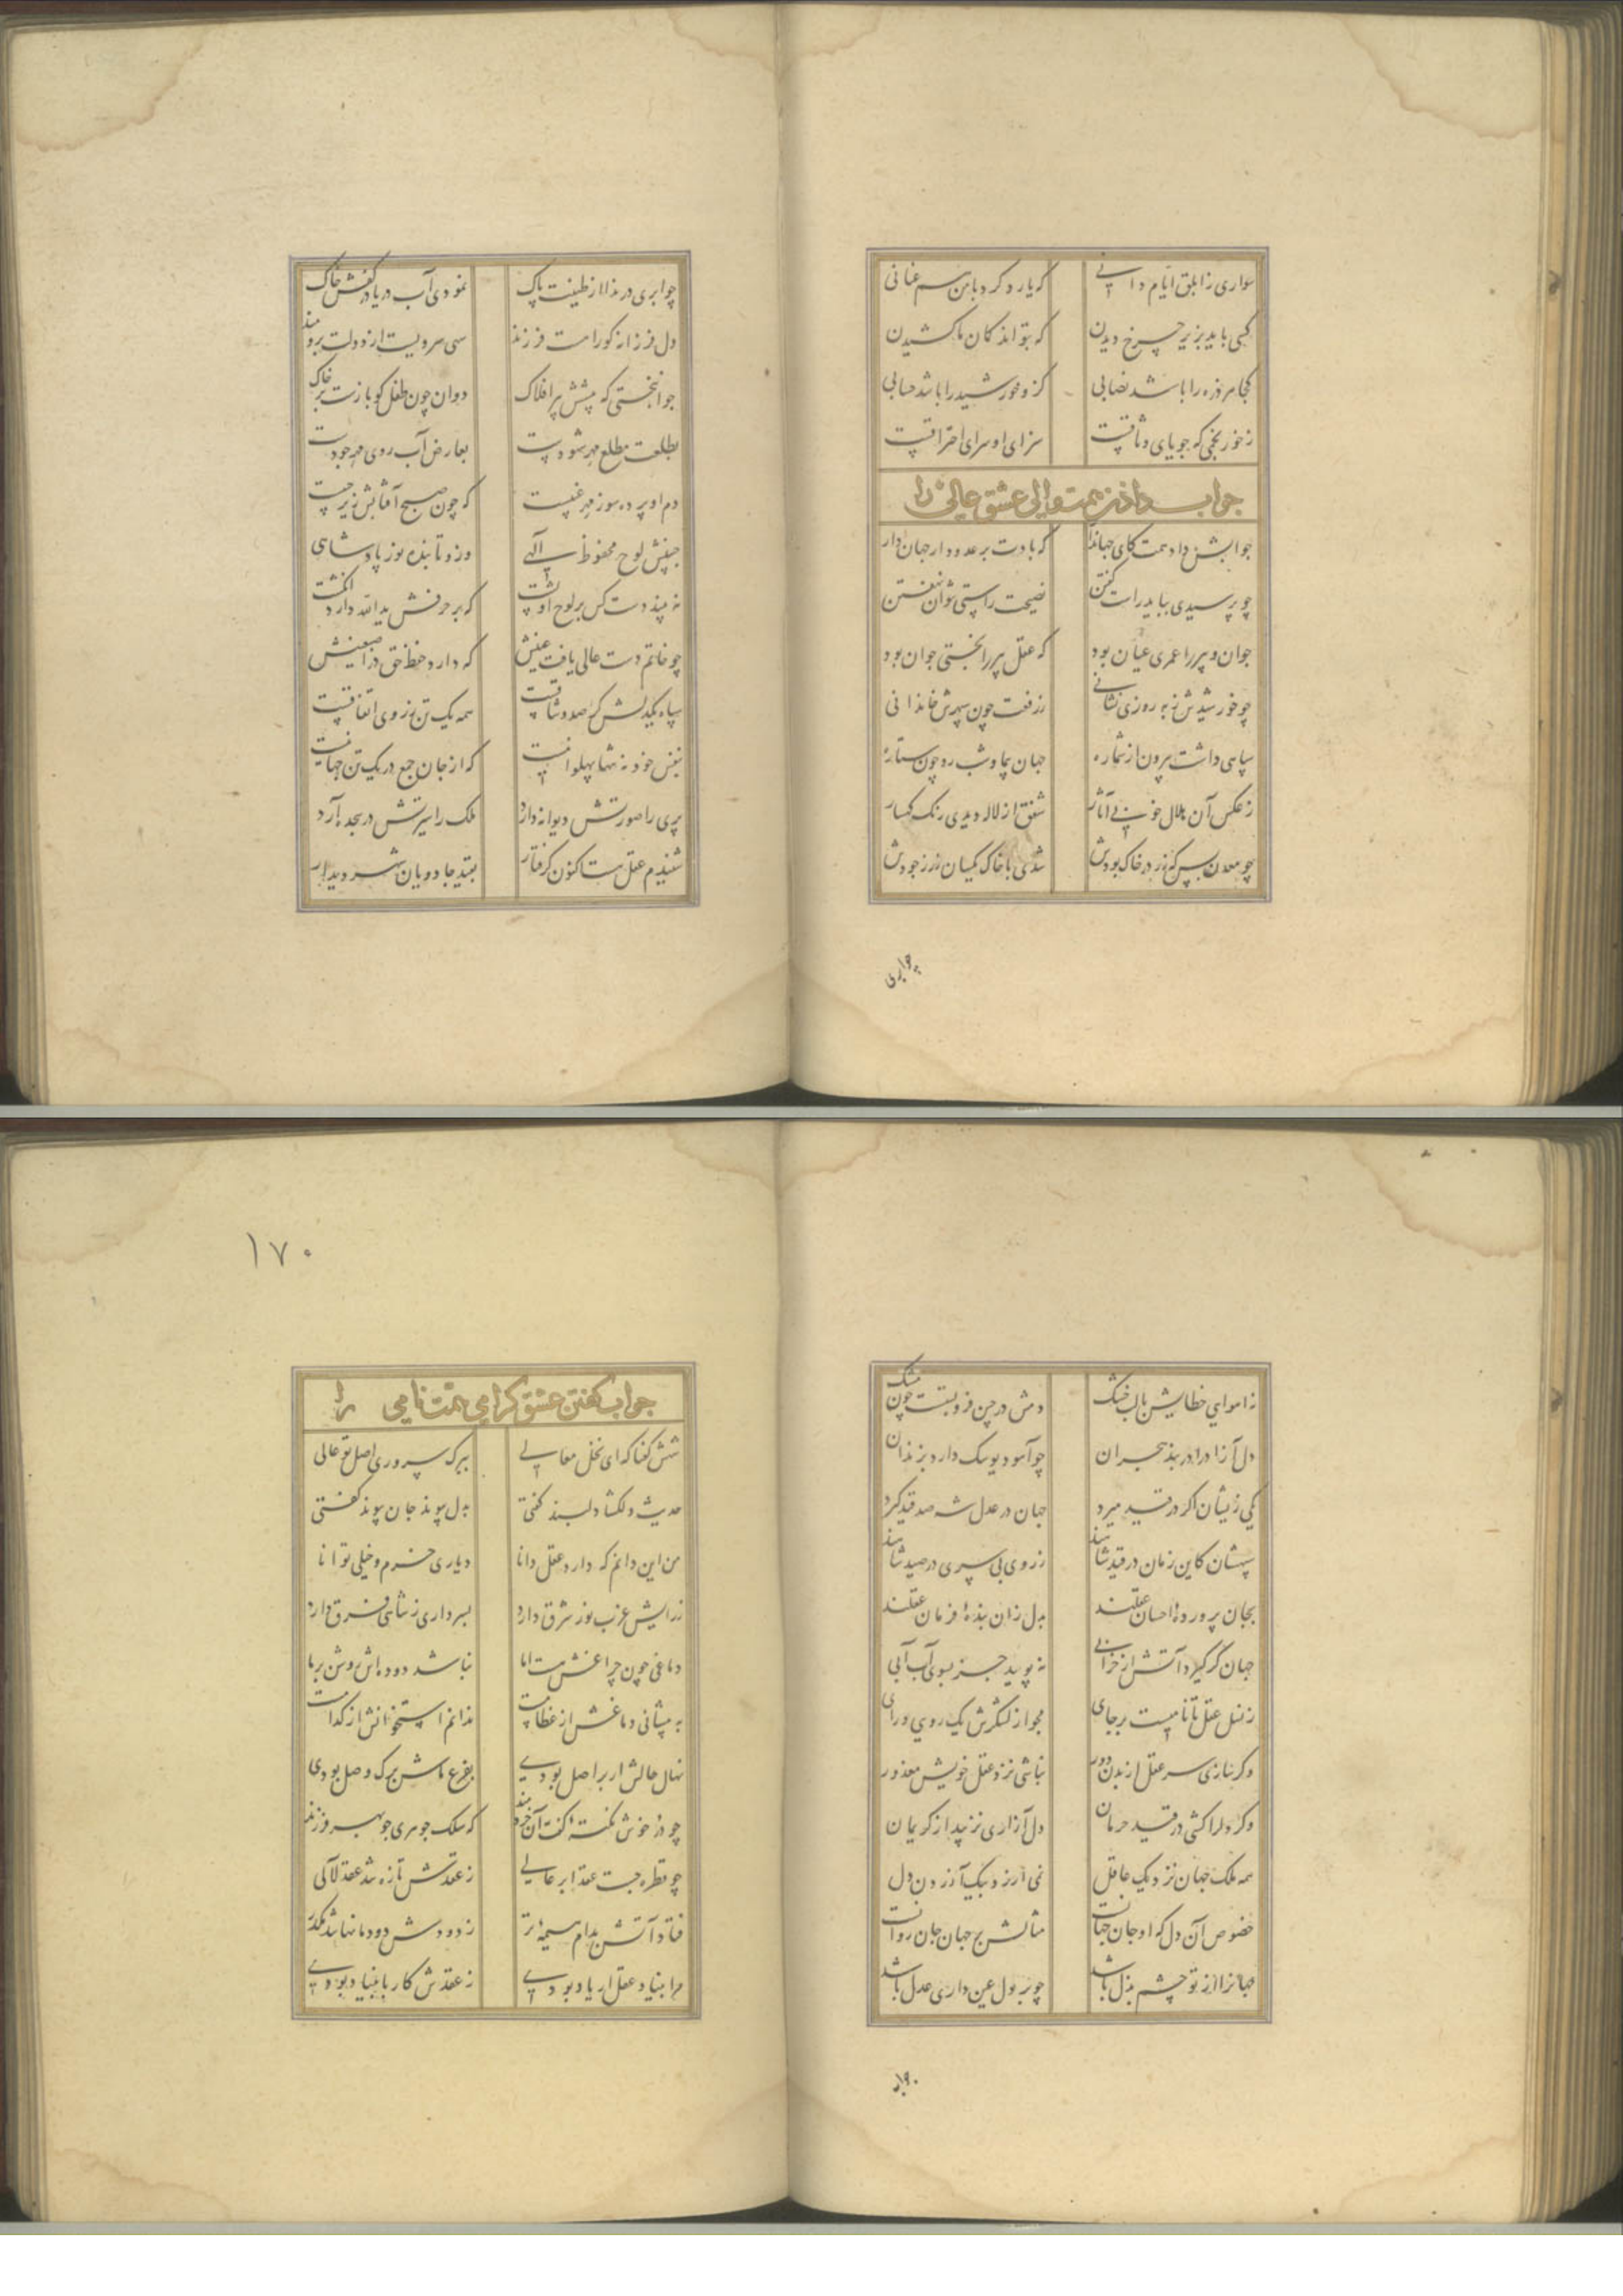 سواری ز ابلق ایام دانی که یارد کرد با من هم عنانی
کسی باید بزیر چرخ دیدن که بتواند کمان ما کشیدن
کجا هر ذره را باشد نصابی کزو خورشید را باشد حسابی
سزای او سرای احتراقیست
جواب دادن همت والی عشق عالی را
جوابش داد همت کای جهاندار که بادت بر عدو دار جهان دار
چو پرسیدی بباید راست گفتن نصیحت راستی نتوان نهفتن
جوان و پیر را عمری عیان بود که عقل پیر را بختی جوان بود
چو خورشیدش به روزی نشانی ز رفعت چون سپهرش خاندانی
سپاهی داشت بیرون از شماره جهان پیما و شب رو چون ستاره
ز عکس آن بلال خونی آثار شفق از لاله دیدی رنگ کهسار
چو معدن هر که زر در خاک بودش شدی با خاک یکسان زر ز جودش
چو ابری
چو ابری در ندا از طینت پاک نمودی آب دریا در کفش خاک
دل فرزانه کو راست فرزند سهی سرویست از دولت برومند
جوانبختی که پیشش پیر افلاک دوان چون طفل کو بازست بر خاک
بطلعت مطلع مهر شهودست بعارض آب روی مه جودست
دم او پرده سوز مهر غیبست که چون صبح آفتابش زیر جیبست
جبینش لوح محفوظ الهی درو تابنده نور پادشاهی
نه بیند دست کس بر لوح او پشت که بر حرفش ید الله دارد انگشت
چو خاتم دست عالی یافت عینش که دارد حفظ حق در اصبعینش
سپاه یکدلش گر صد وثاقست همه یک تن ز روی اتفاقست
بنفس خود نه تنها پهلوانیست که از جان جمع در یک تن جهانیست
پری را صورتش دیوانه دارد ملک را سیرتش در سجده آرد
شنیدم عقل هست اکنون گرفتار بقید جادویان شهر دیدار
ز آهوای خطایش با لب خشک دمش در چین فرو بستست چون مشک
دل آزاد را در بند هجران چو آهو دیو سگ دارد بزندان
یکی زیشان اگر در قید میرد جهان در عدل شه صد قید گیرد
سپهشان کاین زمان در قید شاهند ز روی بی سپری در صید شاهند
بجان پروردهٔ احسان عقلند بدل زان بندهٔ فرمان عقلند
جهان گر گیرد آتش از خرابی نه پوید جز بسوی آب آبی
ز نسل عقل تا نامیست بر جای مجو از لشکرش یک روی و رای
وگر سازی سر عقل از بدن دور نباشی نزد عقل خویش معذور
وگر دلرا کشی در قید حرمان دل آزاری نزیبد از کریمان
همه ملک جهان نزدیک عاقل نمی ارزد بیک آزردن دل
خصوص آن دل که او جان جهانست مثالش بر جهان جان روانست
جهانرا از تو چشم بذل باشد چو بر بول عین داری عدل باشد
جواب
۱۷۰
جواب گفتن عشق گرامی همت نامی را
شهش گفتا که ای نخل معالی ببرگ سروری اصل تو عالی
حدیث دلگشا دلبند گفتی بدل پیوند جان پیوند گفتی
من این دانم که دارد عقل دانا دیاری خرم و خیلی توانا
ز رایش غرب نور شرق دارد بسرداری ز شاهی فرق دارد
دماغی چون چراغش هست اما نباشد دوده اش روشن بر ما
به پیشانی دماغش از عظامست ندانم استخوانش از کدامست
نهال حالش ار بر اصل بودی بفرع ماش برگ وصل بودی
چو در خوش نکتهٔ گفت آن خردمند که سلک جوهری جو بهر فرزند
چو قطره جست عقد ابر عالی ز عقدش تازه شد عقد لآلی
فتاد آتش بدام هیمهٔ تر ز دودش دودمانها شد مکدر
مرا بنیاد عقل ار یاد بودی ز عقدش کار با بنیاد بودی